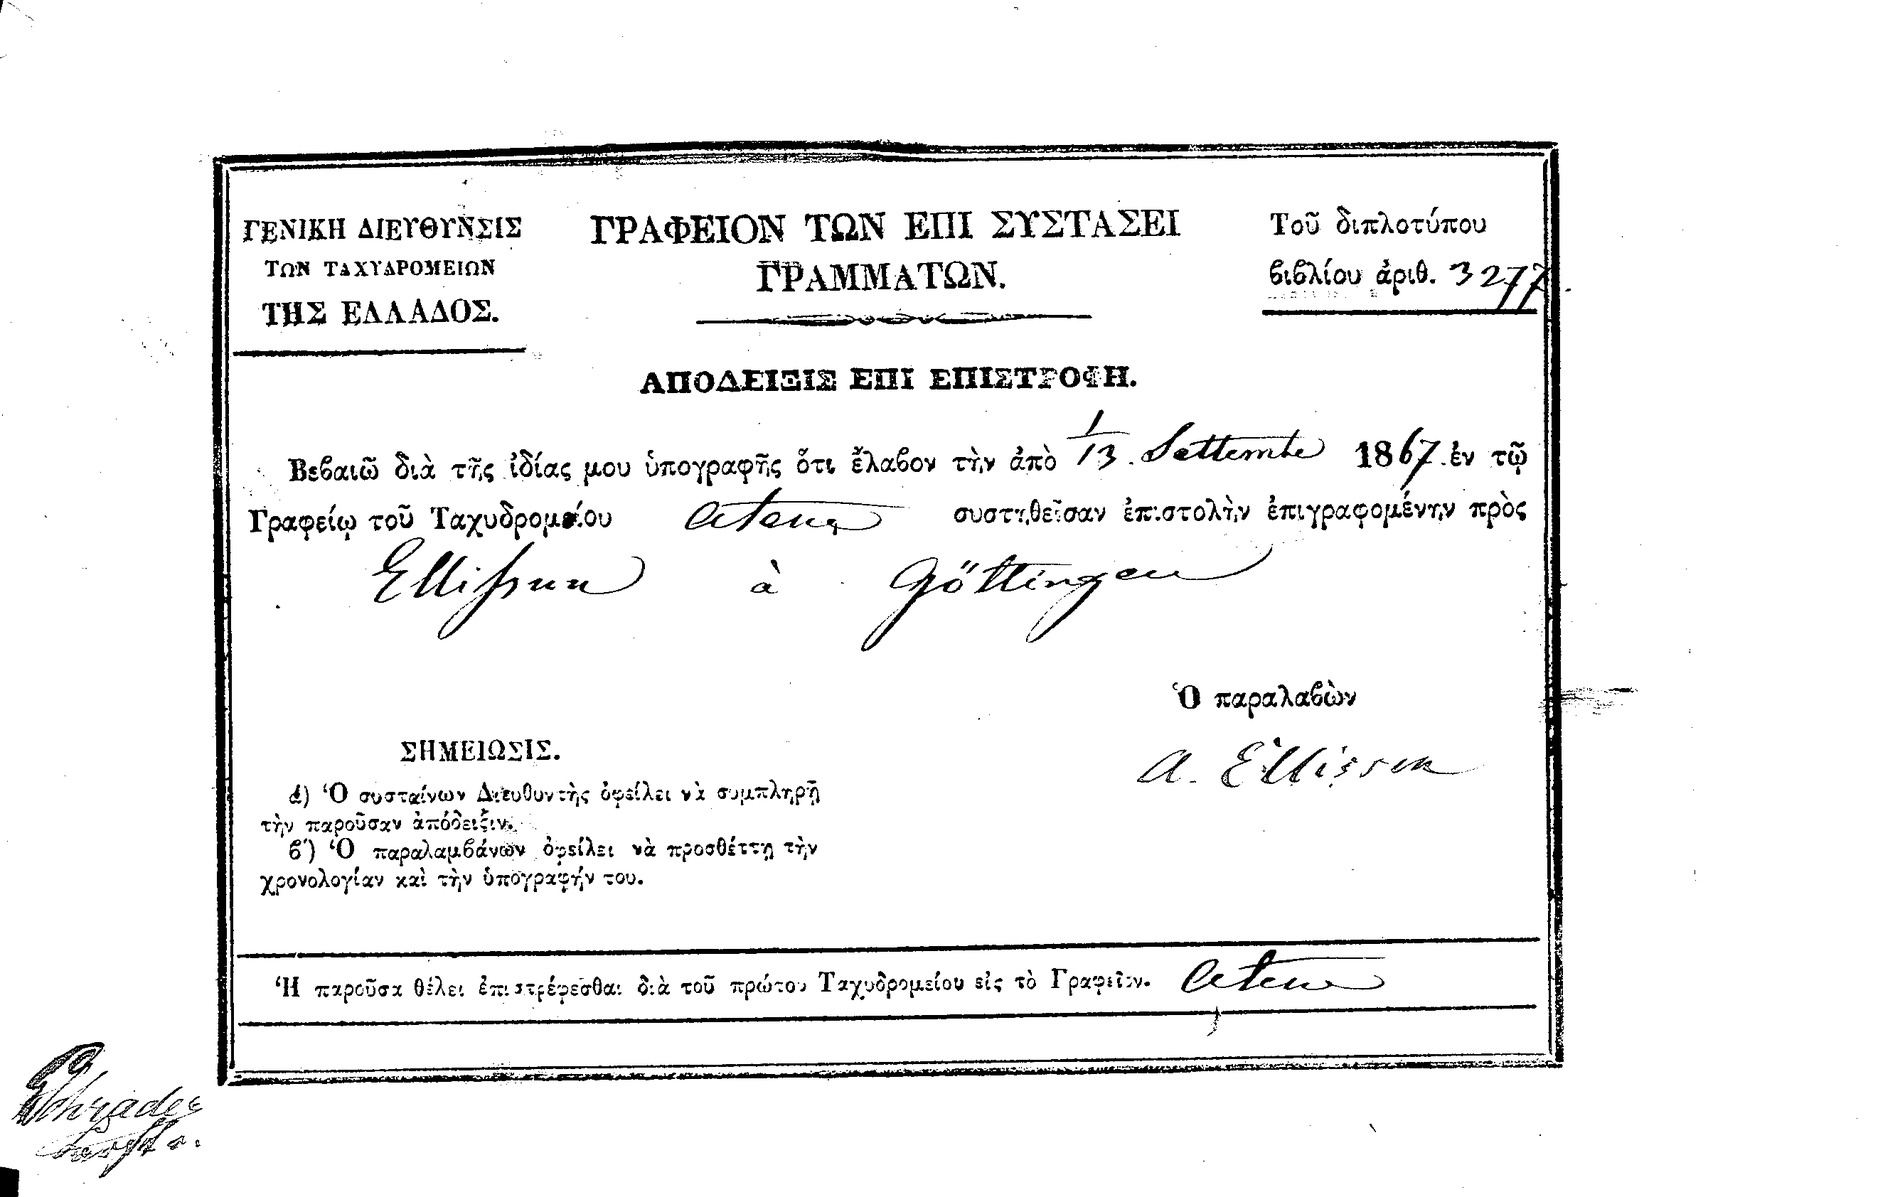 ΓΕΝΙΚΗ ΔΙΕΥΘΥΝΣΙΣ
ΤΩΝ ΤΑΧΥΔΡΟΜΕΙΩΝ
ΤΗΣ ΕΛΛΑΔΟΣ.
ΓΡΑΦΕΙΟΝ ΤΩΝ ΕΠΙ ΣΥΣΤΑΣΕΙ
ΓΡΑΜΜΑΤΩΝ.
Τοῦ διπλοτύπου
βιβλίου ἀριθ. 3277
ΑΠΟΔΕΙΞΙΣ ΕΠΙ ΕΠΙΣΤΡΟΦΗ.
Βεβαιῶ διὰ τῆς ἰδίας μου ὑπογραφῆς ὅτι ἔλαβον τὴν ἀπὸ 1/13. Settembe 1867. ἐν τῷ
Γραφείῳ τοῦ Ταχυδρομείου Atene συστηθεῖσαν ἐπιστολὴν ἐπιγραφομένην πρὸς
Ellissen à Göttingen
Ὁ παραλαβὼν
A. Ellissen
ΣΗΜΕΙΩΣΙΣ.
ά) Ὁ συσταίνων Διευθυντὴς ὀφείλει νὰ συμπληρῇ
τὴν παροῦσαν ἀπόδειξιν.
β΄) Ὁ παραλαμβάνων ὀφείλει νὰ προσθέττῃ τὴν
χρονολογίαν καὶ τὴν ὑπογραφήν του.
Ἡ παροῦσα θέλει ἐπιστρέφεσθαι διὰ τοῦ πρώτου Ταχυδρομείου εἰς τὸ Γραφεῖον. Atene
Schrader